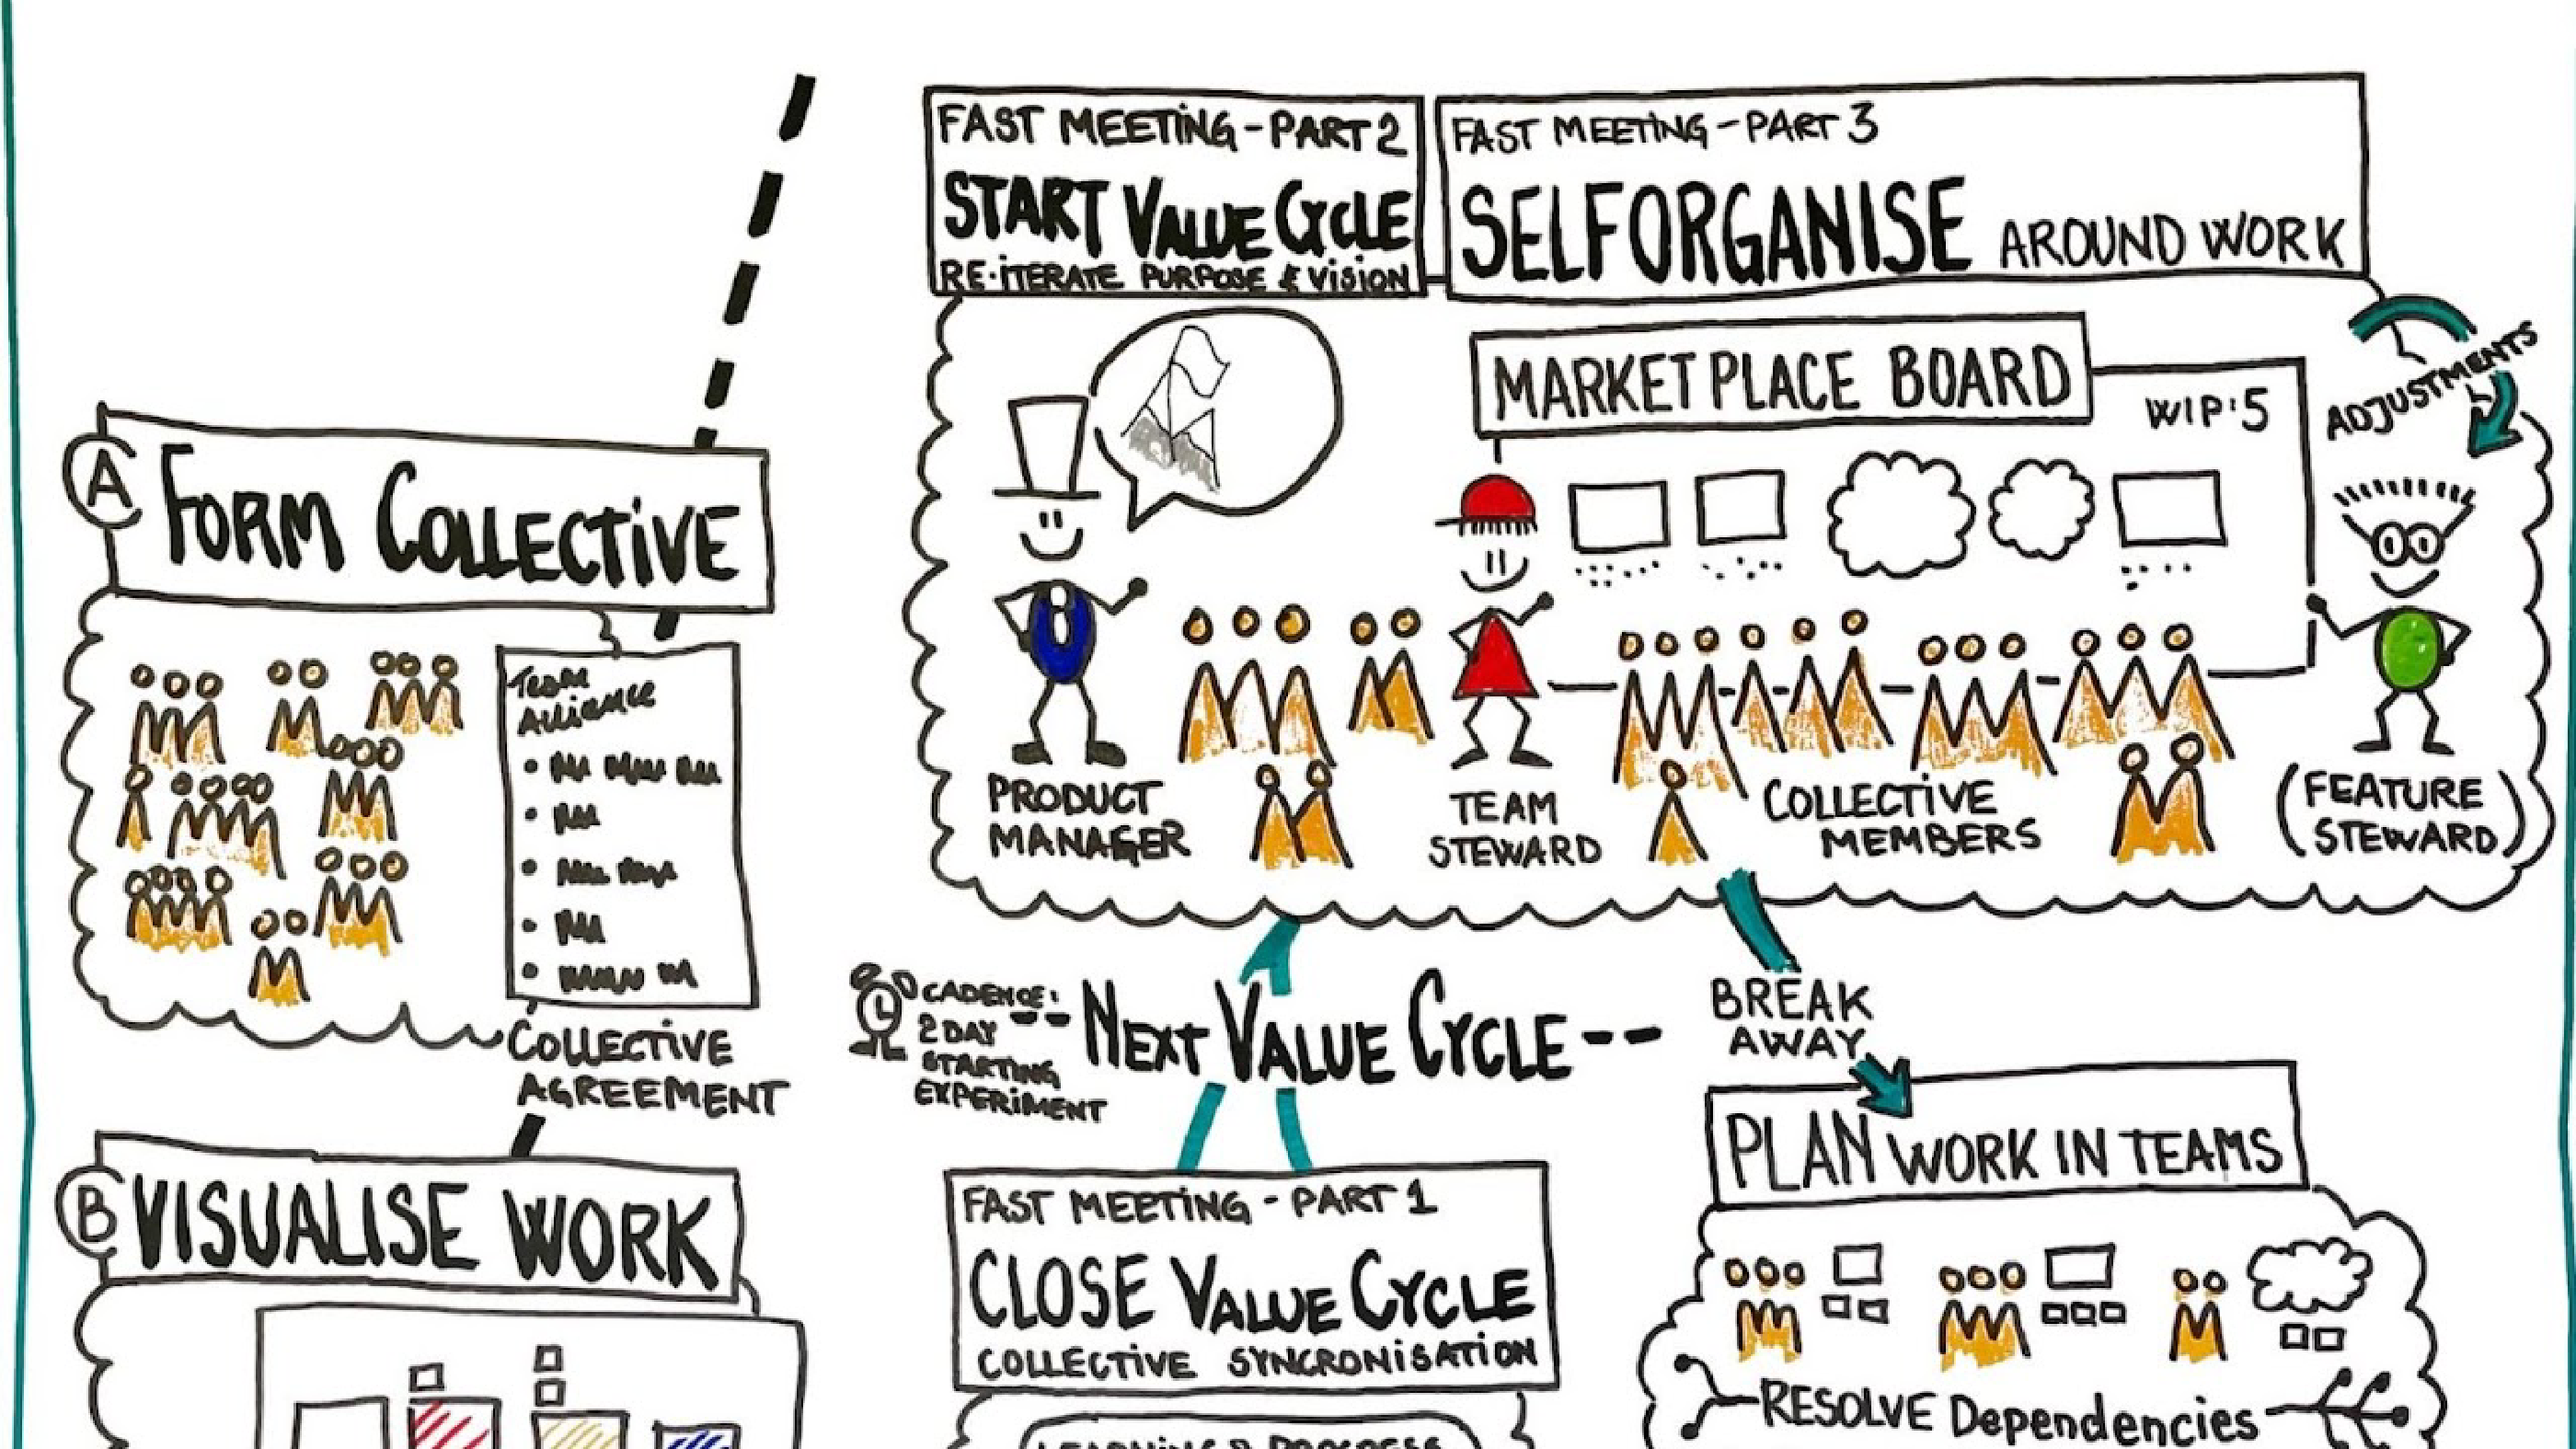 FAST MEETING - PART 2
START VALUE CYCLE
RE-ITERATE PURPOSE & VISION
FAST MEETING - PART 3
SELFORGANISE AROUND WORK
MARKETPLACE BOARD
WIP:5
ADJUSTMENTS
PRODUCT
MANAGER
TEAM
STEWARD
COLLECTIVE
MEMBERS
(FEATURE
STEWARD)
A
FORM COLLECTIVE
Team
Alliance
COLLECTIVE
AGREEMENT
B
VISUALISE WORK
CADENCE:
2 DAY
STARTING
EXPERIMENT
-- NEXT VALUE CYCLE --
BREAK
AWAY
FAST MEETING - PART 1
CLOSE VALUE CYCLE
COLLECTIVE SYNCRONISATION
LEARNING & PROGRESS
PLAN WORK IN TEAMS
RESOLVE Dependencies